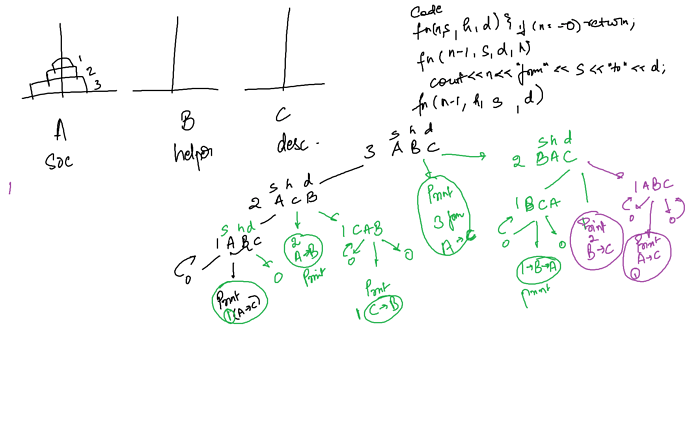 Code
fn(n,s, h, d) { if (n==0) return;
fn(n-1, s, d, h)
cout<<n<<"from"<<s<<"to"<<d;
fn(n-1, h, s, d)
1
2
3
A
B
C
soc
helper
desc.
s h d
3 A B C
s h d
2 A C B
s h d
2 B A C
1
s h d
1 A B C
0
0
Print
1(A→C)
2
A→B
Print
1 C A B
0
0
Print
1 C→B
Print
3 from
A→C
1 B C A
0
0
1→B→A
print
Print
2
B→C
1 A B C
0
0
Print
A→C